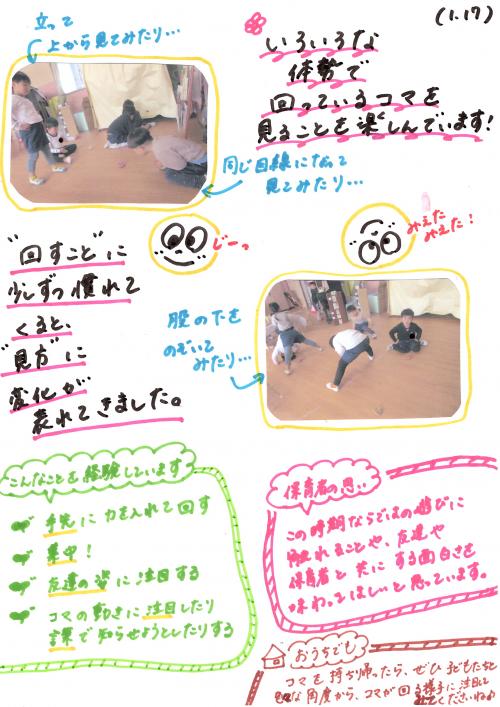 (1.17)
立って
上から見てみたり…
いろいろな
体勢で
回っているコマを
見ることを楽しんでいます!
同じ目線になって
見てみたり…
じーっ
みえた
みえた!
"回すこと"に
少しずつ慣れて
くると、
"見方"に
変化が
表れてきました。
股の下を
のぞいて
みたり…
こんなことを経験しています
手先に力を入れて回す
集中!
友達の姿に注目する
コマの動きに注目したり
言葉で知らせようとしたりする
保育者の思い
この時期ならではの遊びに
触れることや、友達や
保育者と共にする面白さを
味わってほしいと思っています。
おうちでも
コマを持ち帰ったら、ぜひ子どもたちと
な角度から、コマが回る様子に注目して
みてくださいね♪